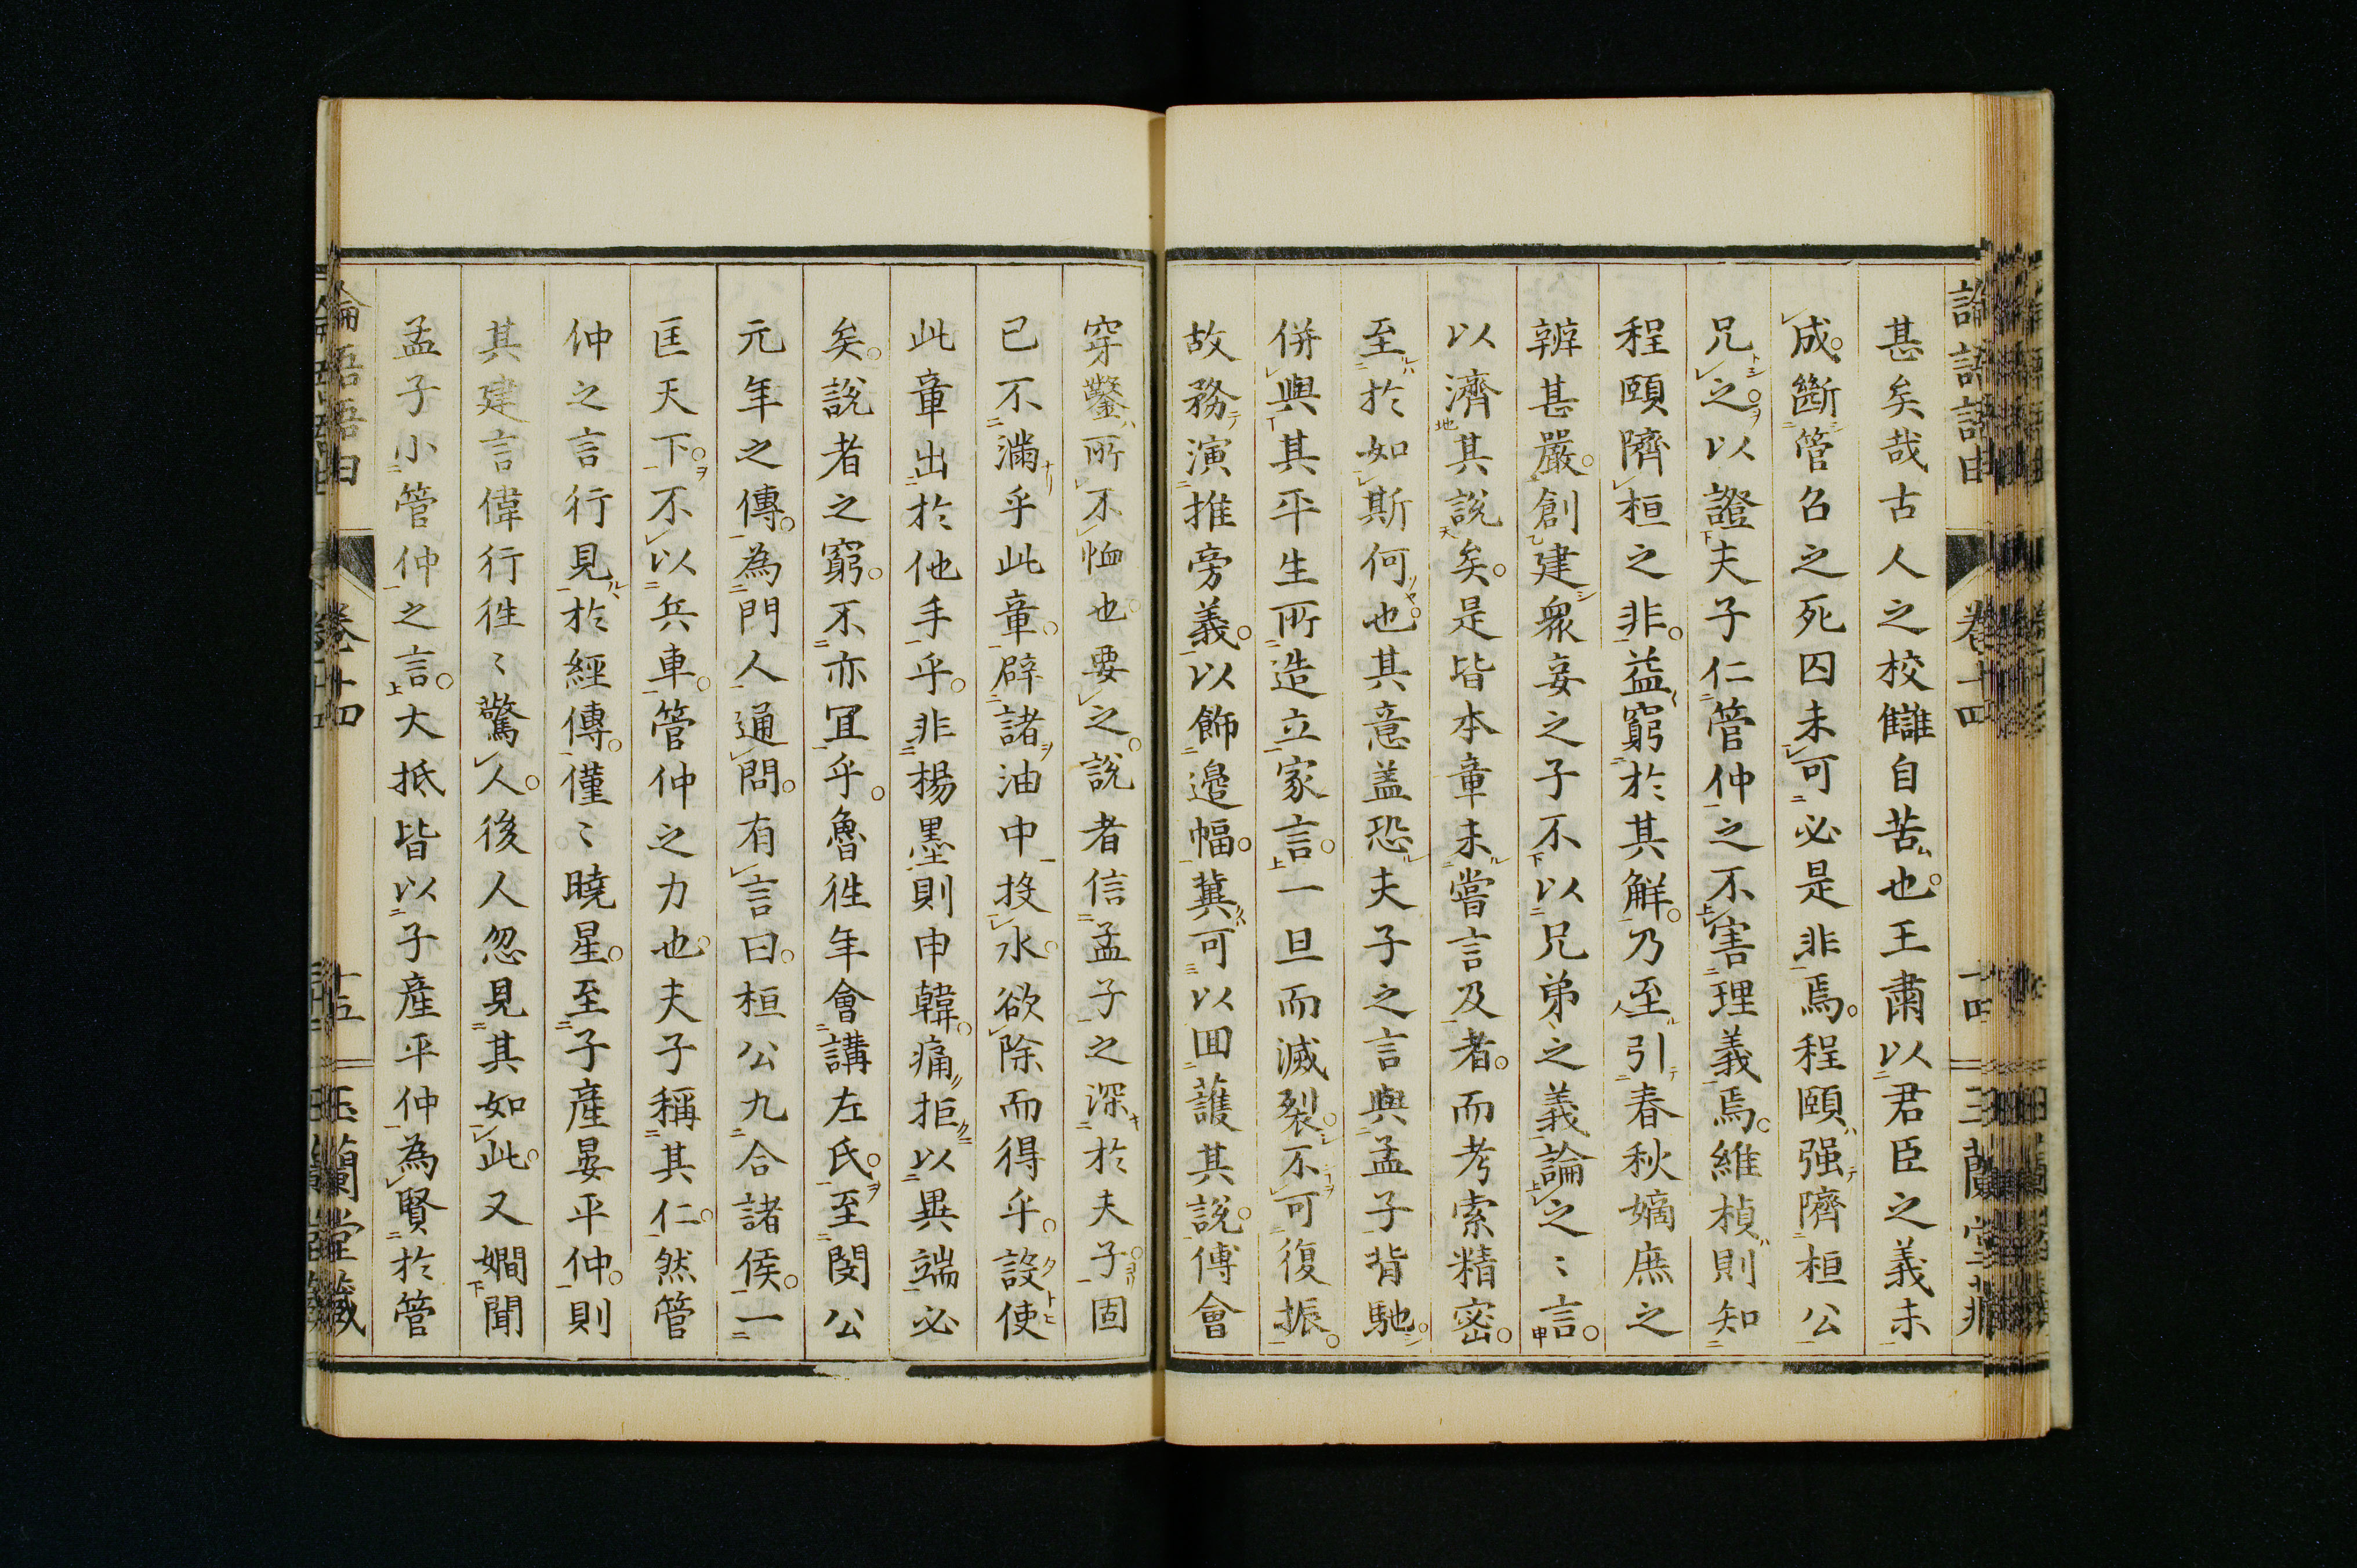 甚矣哉古人之校讎自苦也。王肅以君臣之義未
成。斷管召之死囚未可必是非焉。程頤强隮桓公
兄之。以證夫子仁管仲之不害理義焉。維楨則知
程頤隮桓之非。益窮於其解。乃至引春秋嫡庶之
辨甚嚴。創建衆妾之子不以兄弟之義論之〻言。
以濟其說矣。是皆本章未嘗言及者。而考索精密。
至於如斯何也。其意盖恐夫子之言與孟子背馳。
併與其平生所造立家言。一旦而滅裂。不可復振。
故務演推旁義。以飾邊幅。冀可以囬護其說。傅會
穿鑿所不恤也。要之。說者信孟子之深於夫子。固
已不滿乎此章。辟諸油中投水。欲除而得乎。設使
此章出於他手乎。非楊墨則申韓。痛拒以異端必
矣。說者之窮。不亦冝乎。魯徃年會講左氏。至閔公
元年之傳。為門人通問。有言曰。桓公九合諸侯。一
匡天下。不以兵車。管仲之力也。夫子稱其仁。然管
仲之言行見於經傳。僅〻曉星。至子產晏平仲。則
其建言偉行徃〻驚人。後人忽見其如此。又嫺聞
孟子小管仲之言。大抵皆以子產平仲為賢於管
論語語由 卷十四 十五 玉蘭堂藏